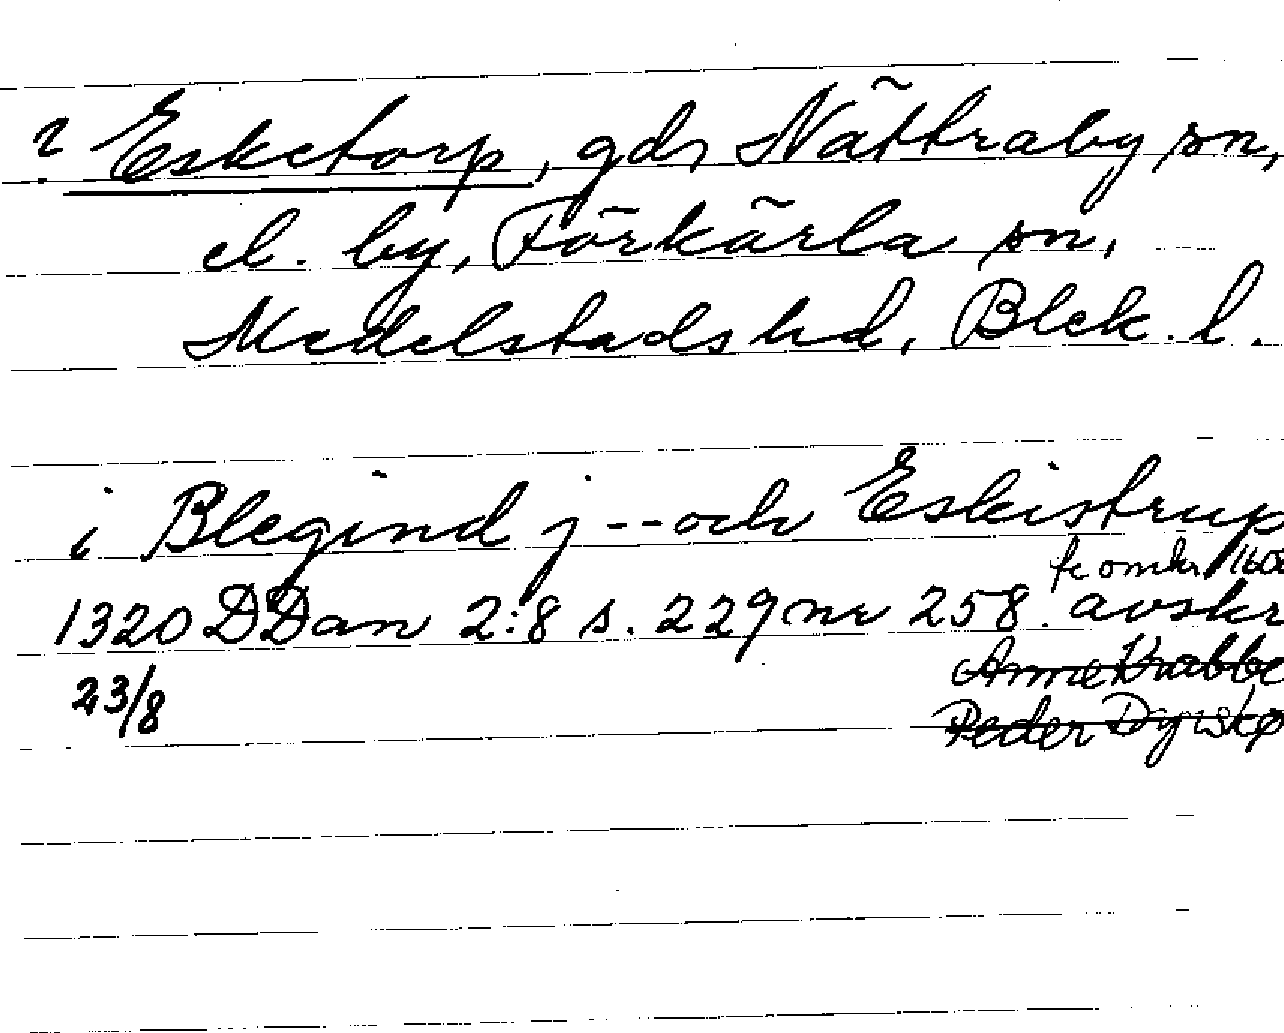 ? Esketorp, gd, Nättraby sn,
el. by, Förkärla sn,
Medelstads hd, Blek. l.
i Blegind j -- och Eskistrup
1320 DDan 2:8 s. 229 nr 258. avskr
fr omkr 1600
Anne Krabbe
Peder Dyrskø
23/8